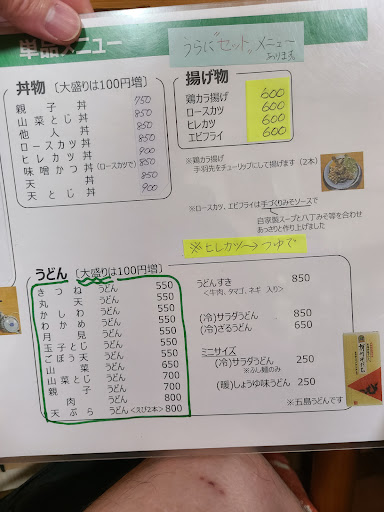 単品メニュー
うらに"セット"メニューあります。
丼物〔大盛りは100円増〕
親子丼 750
山菜とじ丼 850
他人丼 850
ロースカツ丼 850
ヒレカツ丼 900
味噌かつ丼(ロースカツで) 850
天丼 850
天とじ丼 900
揚げ物
鶏カラ揚げ 600
ロースカツ 600
ヒレカツ 600
エビフライ 600
※鶏カラ揚げ
手羽先をチューリップにして揚げます(2本)
※ロースカツ、エビフライは手づくりみそソースで
自家製スープと八丁みそ等を合わせ
あっさりと作り上げました
※ヒレカツ→つゆで
うどん〔大盛りは100円増〕
きつねうどん 550
丸天うどん 550
かしわうどん 550
わかめうどん 550
月見うどん 550
玉子とじうどん 550
ごぼう天うどん 550
山菜うどん 650
山菜とじうどん 700
親子うどん 700
肉うどん 800
天ぷらうどん<えび2本> 800
うどんすき 850
<牛肉、タマゴ、ネギ 入り>
(冷)サラダうどん 850
(冷)ざるうどん 650
ミニサイズ
(冷)サラダうどん 250
※ふし麺のみ
(暖)しょうゆ味うどん 250
※五島うどんです